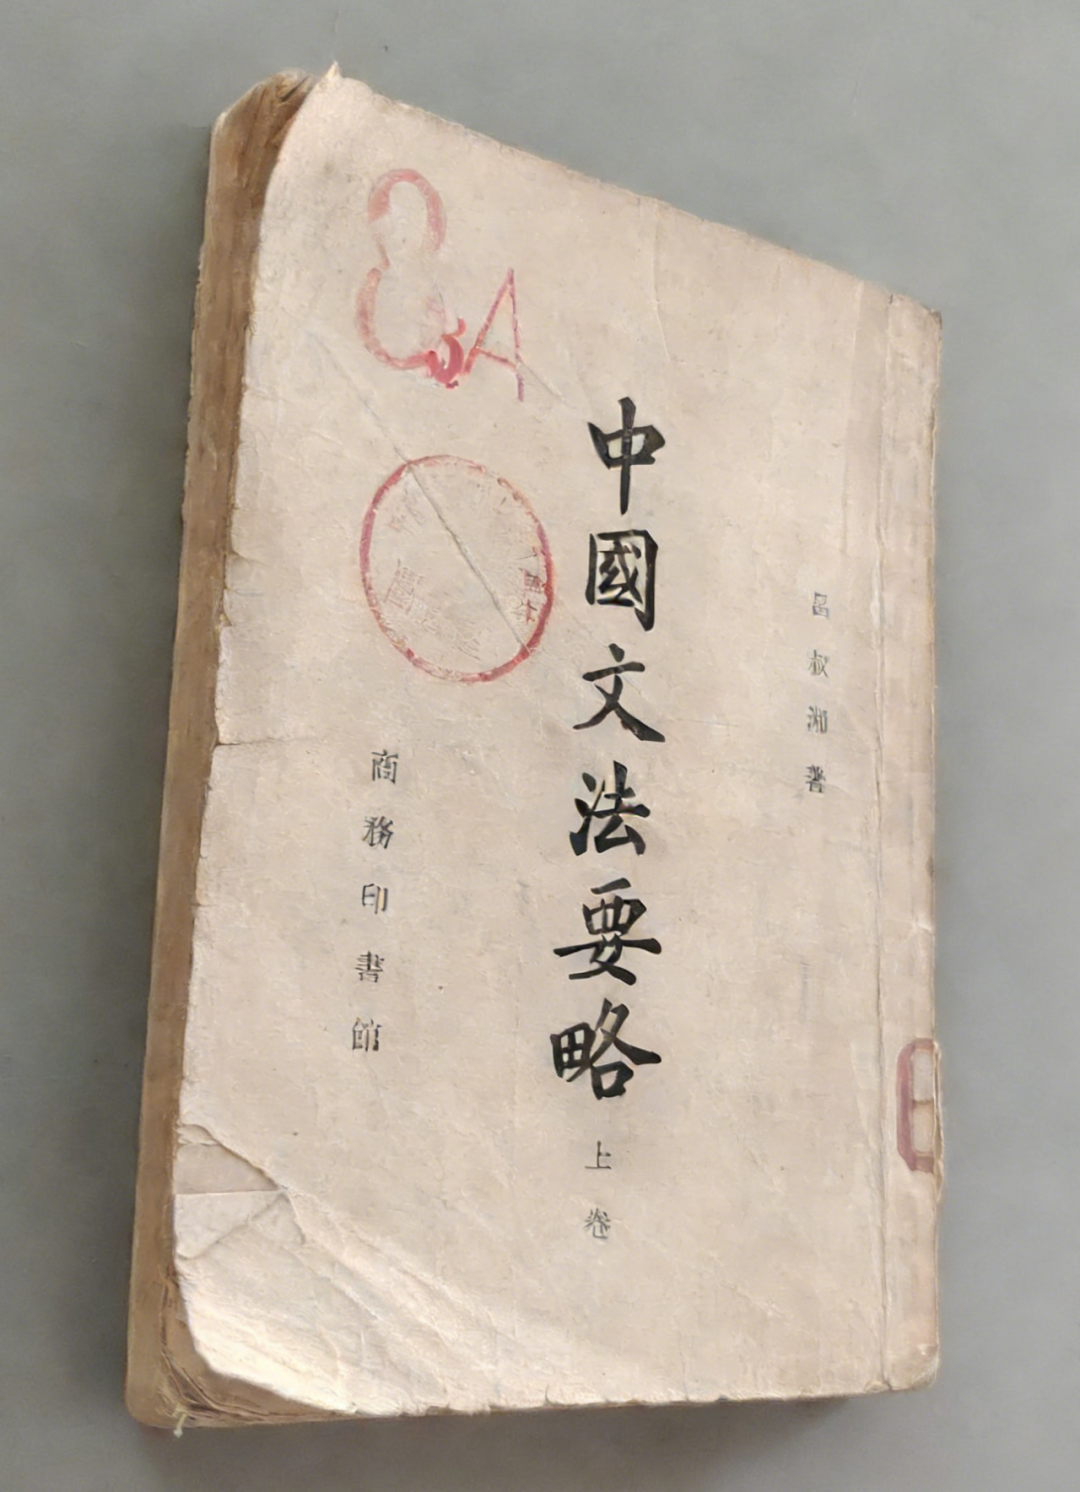 呂叔湘著
中國文法要略
上卷
商務印書館